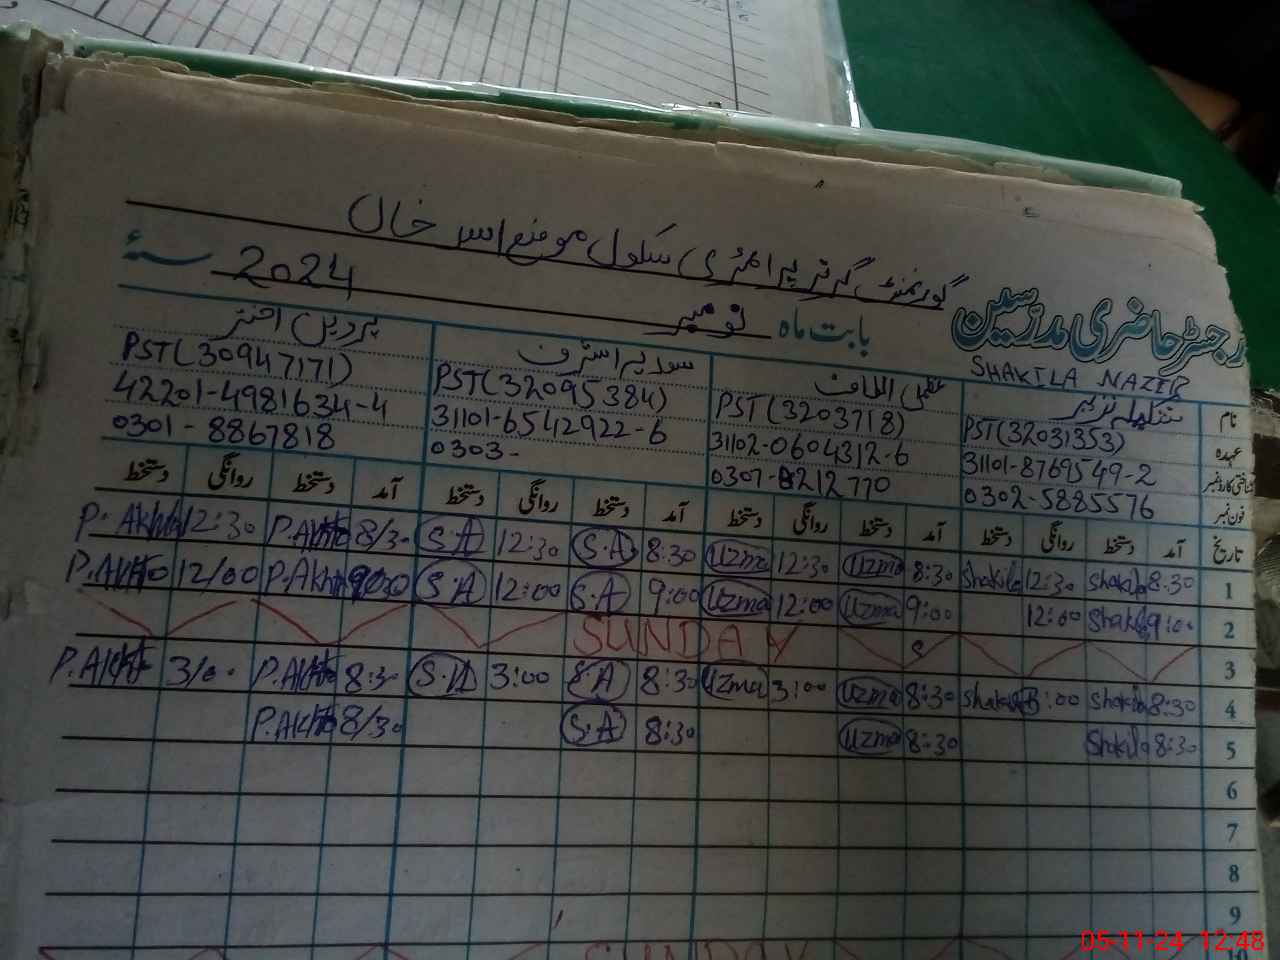 گورنمنٹ گرلز پرائمری سکول موضع اسر خاں
رجسٹر حاضری مدرسین بابت ماہ نومبر 2024 سنہء
SHAKILA NAZER
نام شکیلہ نذیر عظمیٰ الطاف سودیرا اشرف پروین اختر
عہدہ PST(32031353) PST(3203718) PST(32095384) PST(30947171)
شناختی کارڈ نمبر 31101-8769549-2 31102-0604312-6 31101-6542922-6 42201-4981634-4
فون نمبر 0302-5885576 0307-8212770 0303- 0301-8867818
تاریخ آمد دستخط روانگی دستخط آمد دستخط روانگی دستخط آمد دستخط روانگی دستخط آمد دستخط روانگی دستخط
1 8:30 Shakila 12:30 Shakila 8:30 Uzma 12:30 Uzma 8:30 S.A 12:30 S.A 8/30 P.Akhtr 12:30 P.Akhtr
2 9:00 Shakila 12:00 9:00 Uzma 12:00 Uzma 9:00 S.A 12:00 S.A 9:00 P.Akhtr 12/00 P.Akhtr
3 SUNDAY
4 8:30 Shakila 3:00 Shakila 8:30 Uzma 3:00 Uzma 8:30 S.A 3:00 S.A 8:30 P.Akhtr 3/00 P.Akhtr
5 8:30 Shakila 8:30 Uzma 8:30 S.A 8/30 P.Akhtr
6
7
8
9
10 SUNDAY
05-11-24 12:48